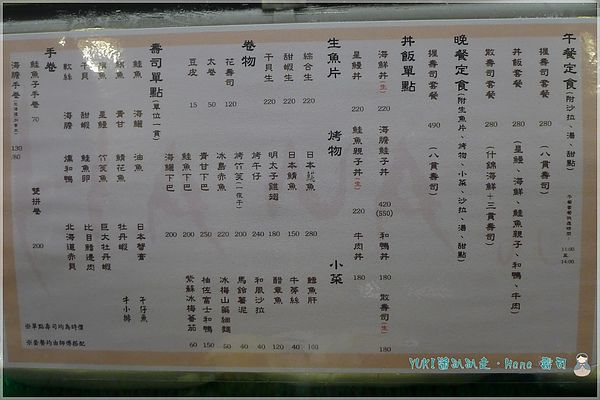 午餐定食(附沙拉、湯、甜點)
午餐餐食供應時間:
11:00
至
14:00
握壽司套餐 280 (八貫壽司)
丼飯套餐 280 (星鰻、海鮮、鮭魚親子、和鴨、牛肉)
散壽司套餐 280 (什錦海鮮+三貫壽司)
晚餐定食(附生魚片、烤物、小菜、沙拉、湯、甜點)
握壽司套餐 490 (八貫壽司)
丼飯單點
海鮮丼(生) 220
海膽鮭子丼 420
(550)
和鴨丼 180
散壽司(生) 180
星鰻丼 220
鮭魚親子丼(生) 220
牛肉丼 180
生魚片
綜合生 220
甜蝦生 220
干貝生 220
烤物
日本鯖魚 150
明太子雞翅 180
烤牛仔 240
烤竹筴(一夜干) 200
冰島赤魚 250
青甘下巴 200
鮭魚下巴 200
海鱺下巴 200
小菜
鱈魚肝 100
牛蒡絲 40
醋章魚 120
和風沙拉 40
馬鈴薯泥 40
冰梅山藥細麵 50
柚佐富士和鴨 150
紫蘇冰梅蕃茄 60
卷物
花壽司 120
太卷 50
豆皮 15
壽司單點(單位一貫)
鮭魚
海鱺
油魚
日本蟹膏
青甘
鯖花魚
牡丹蝦
牛仔魚
星鰻
竹筴魚
巨大牡丹蝦
牛小排
干貝
甜蝦
鮭魚卵
比目鰭邊肉
軟絲
海膽
燻和鴨
北海道赤貝
手卷
鮭魚子手卷 70
雙拼卷 200
海膽手卷 130
180
※單點壽司均為時價
※套餐均由師傅搭配
YUKI醬趴趴走·Hana 壽司